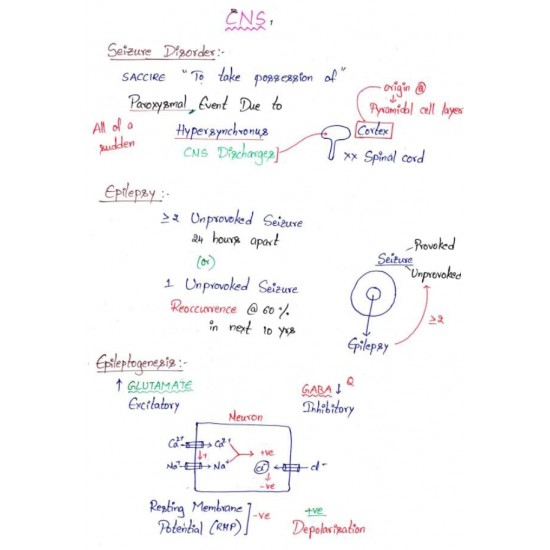 CNS,
Seizure Disorder:-
SACCIRE "To take possession of"
Paroxysmal, Event Due to
All of a
sudden
Hypersynchronus
CNS Discharges
origin @
Pyramidal cell layer
Cortex
xx Spinal cord
Epilepsy :-
≥2 Unprovoked Seizure
24 hours apart
(or)
1 Unprovoked Seizure
Reoccurrence @ 60%
in next 10 yrs
Provoked
Seizure
Unprovoked
≥2
Epilepsy
Epileptogenesis:-
↑ GLUTAMATE
Excitatory
GABA ↓
Inhibitory
Neuron
Ca²⁺ Ca²⁺
+ve
Na⁺ Na⁺
Cl⁻ Cl⁻
-ve
Resting Membrane
Potential (RMP)
-ve
+ve
Depolarization